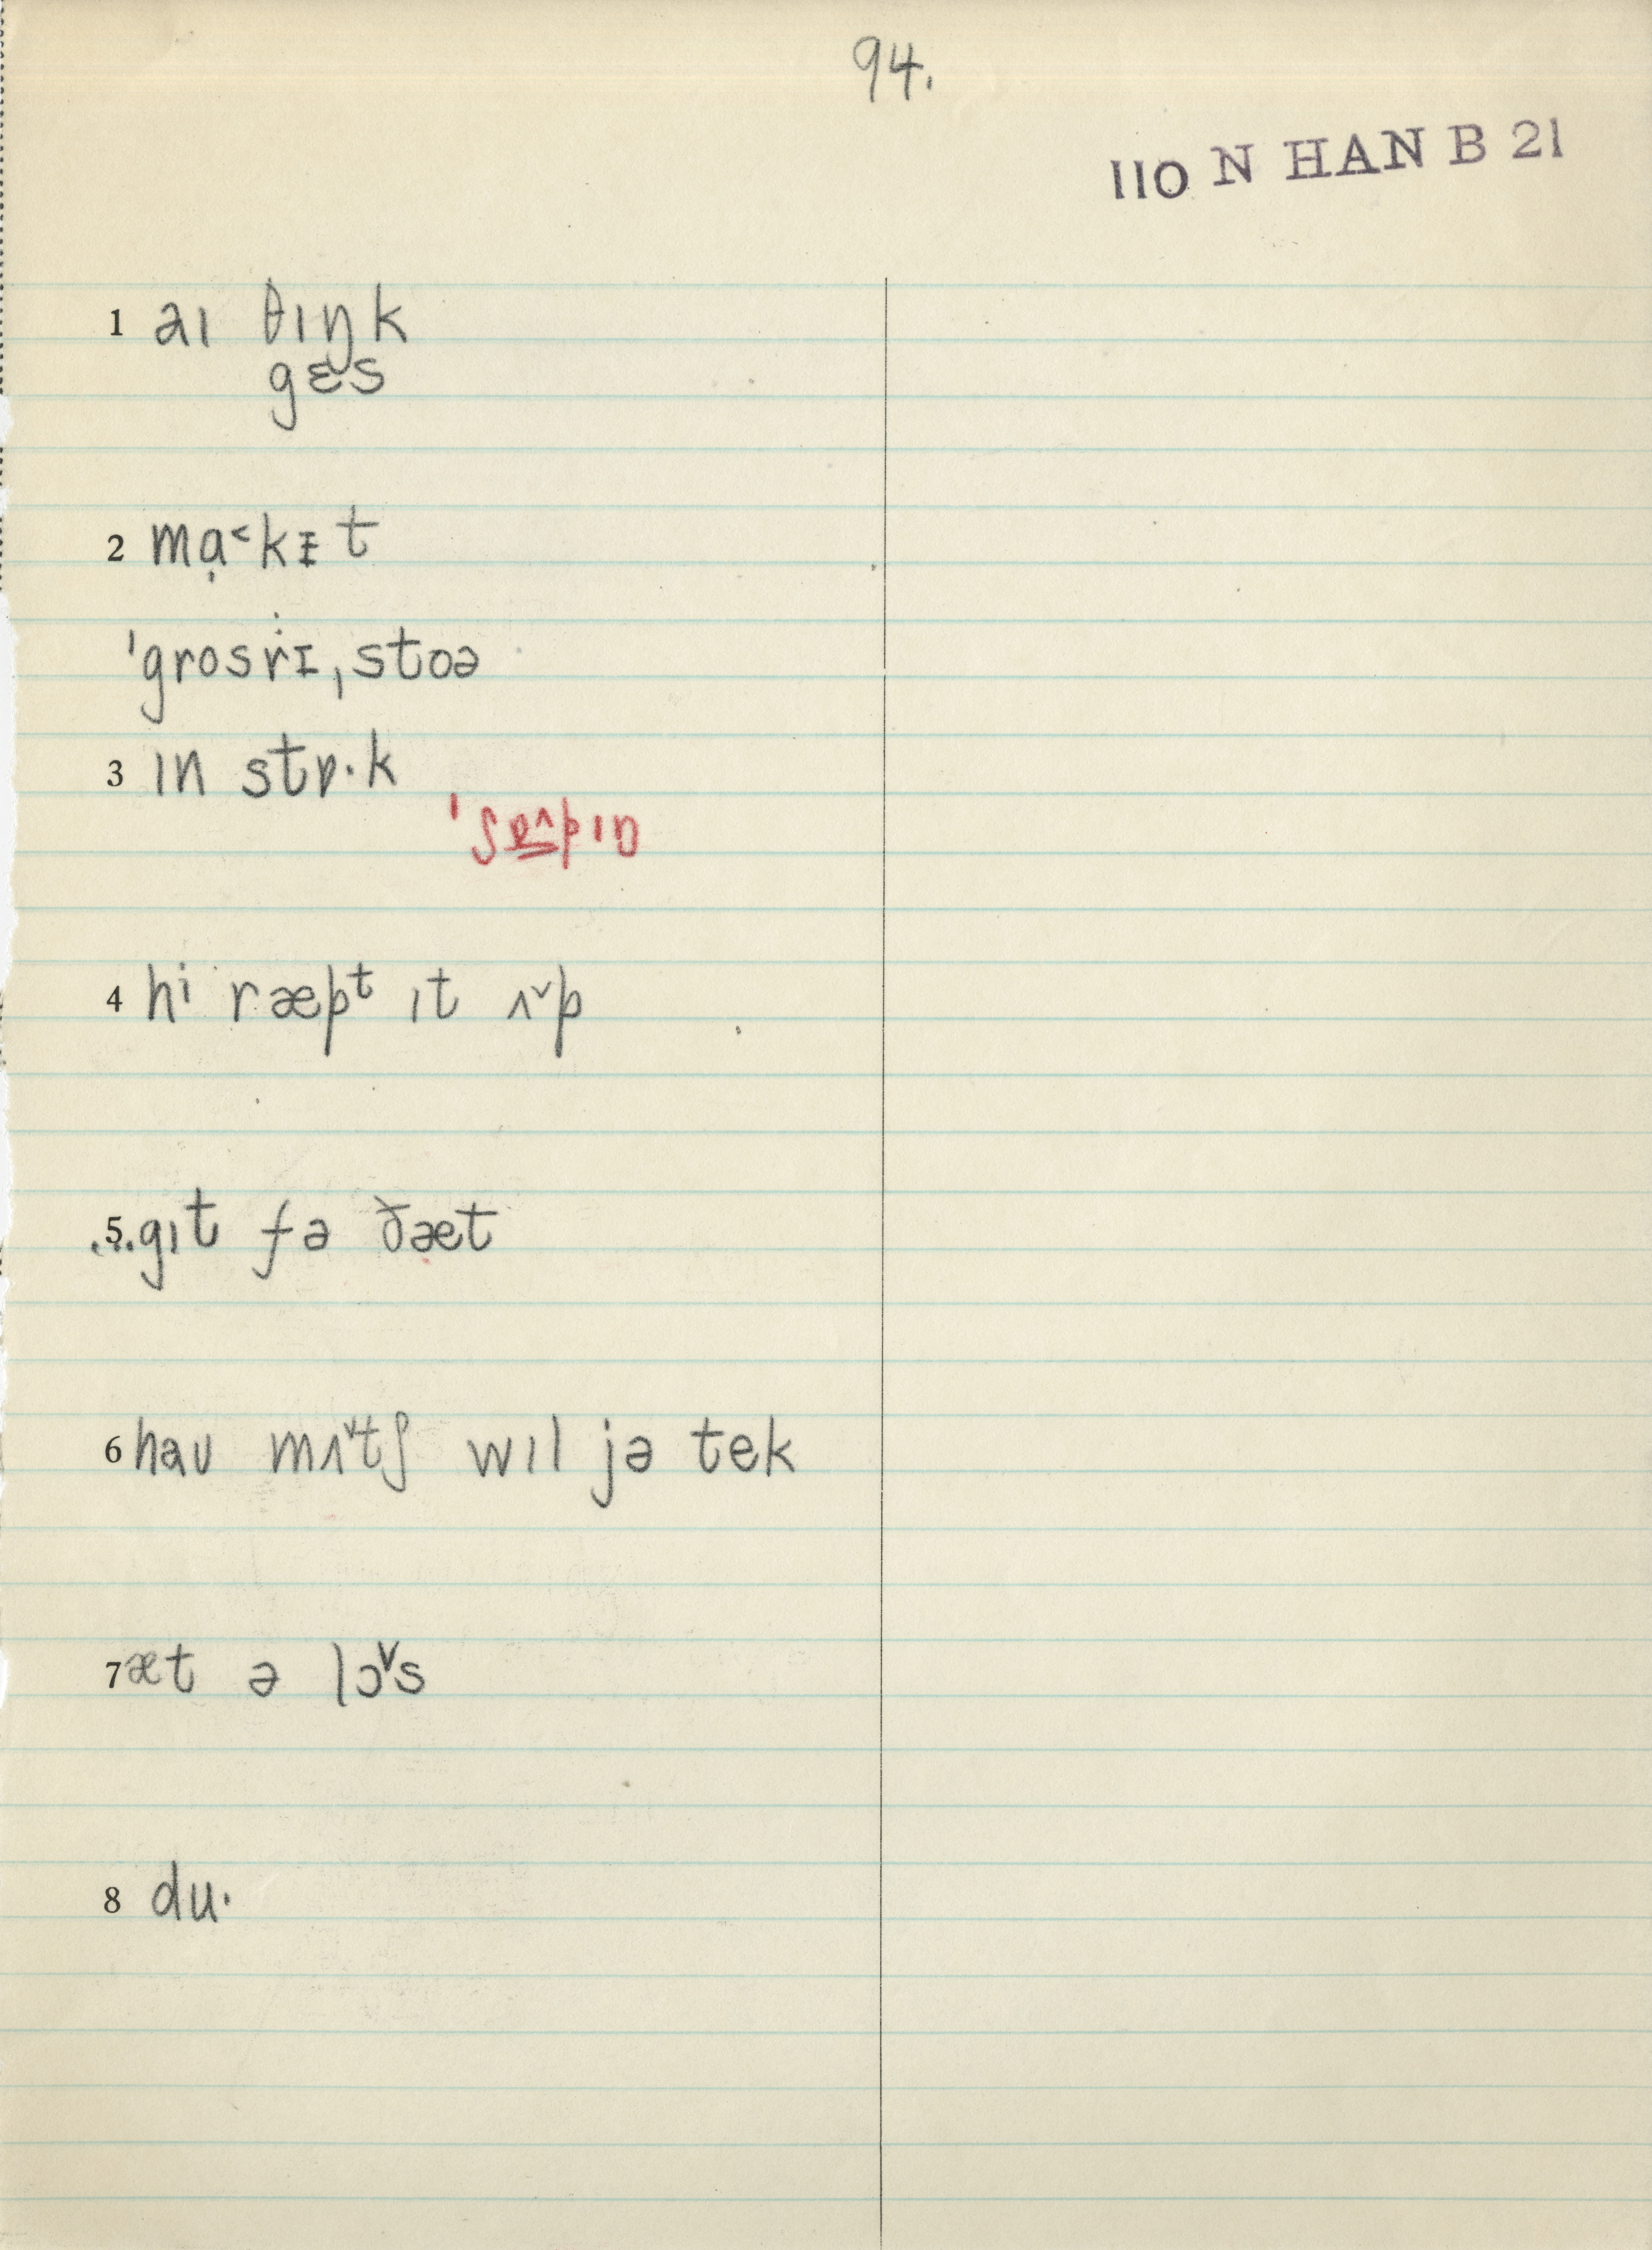 94.
110 N HAN B 21
1 aɪ θɪŋk
gɛs
2 mɑ̣˂kᵻt
ˈgrosṙɪˌstoə
3 ɪn stɒ·k
ˈʃɒ̳˄pɪŋ
4 hi ræpᵗ ɪt ʌ˅p
5 ...gɪt fə ðæt
6 haʊ mʌ˅tʃ wɪl jə tek
7 æt ə lɔ˅s
8 du·